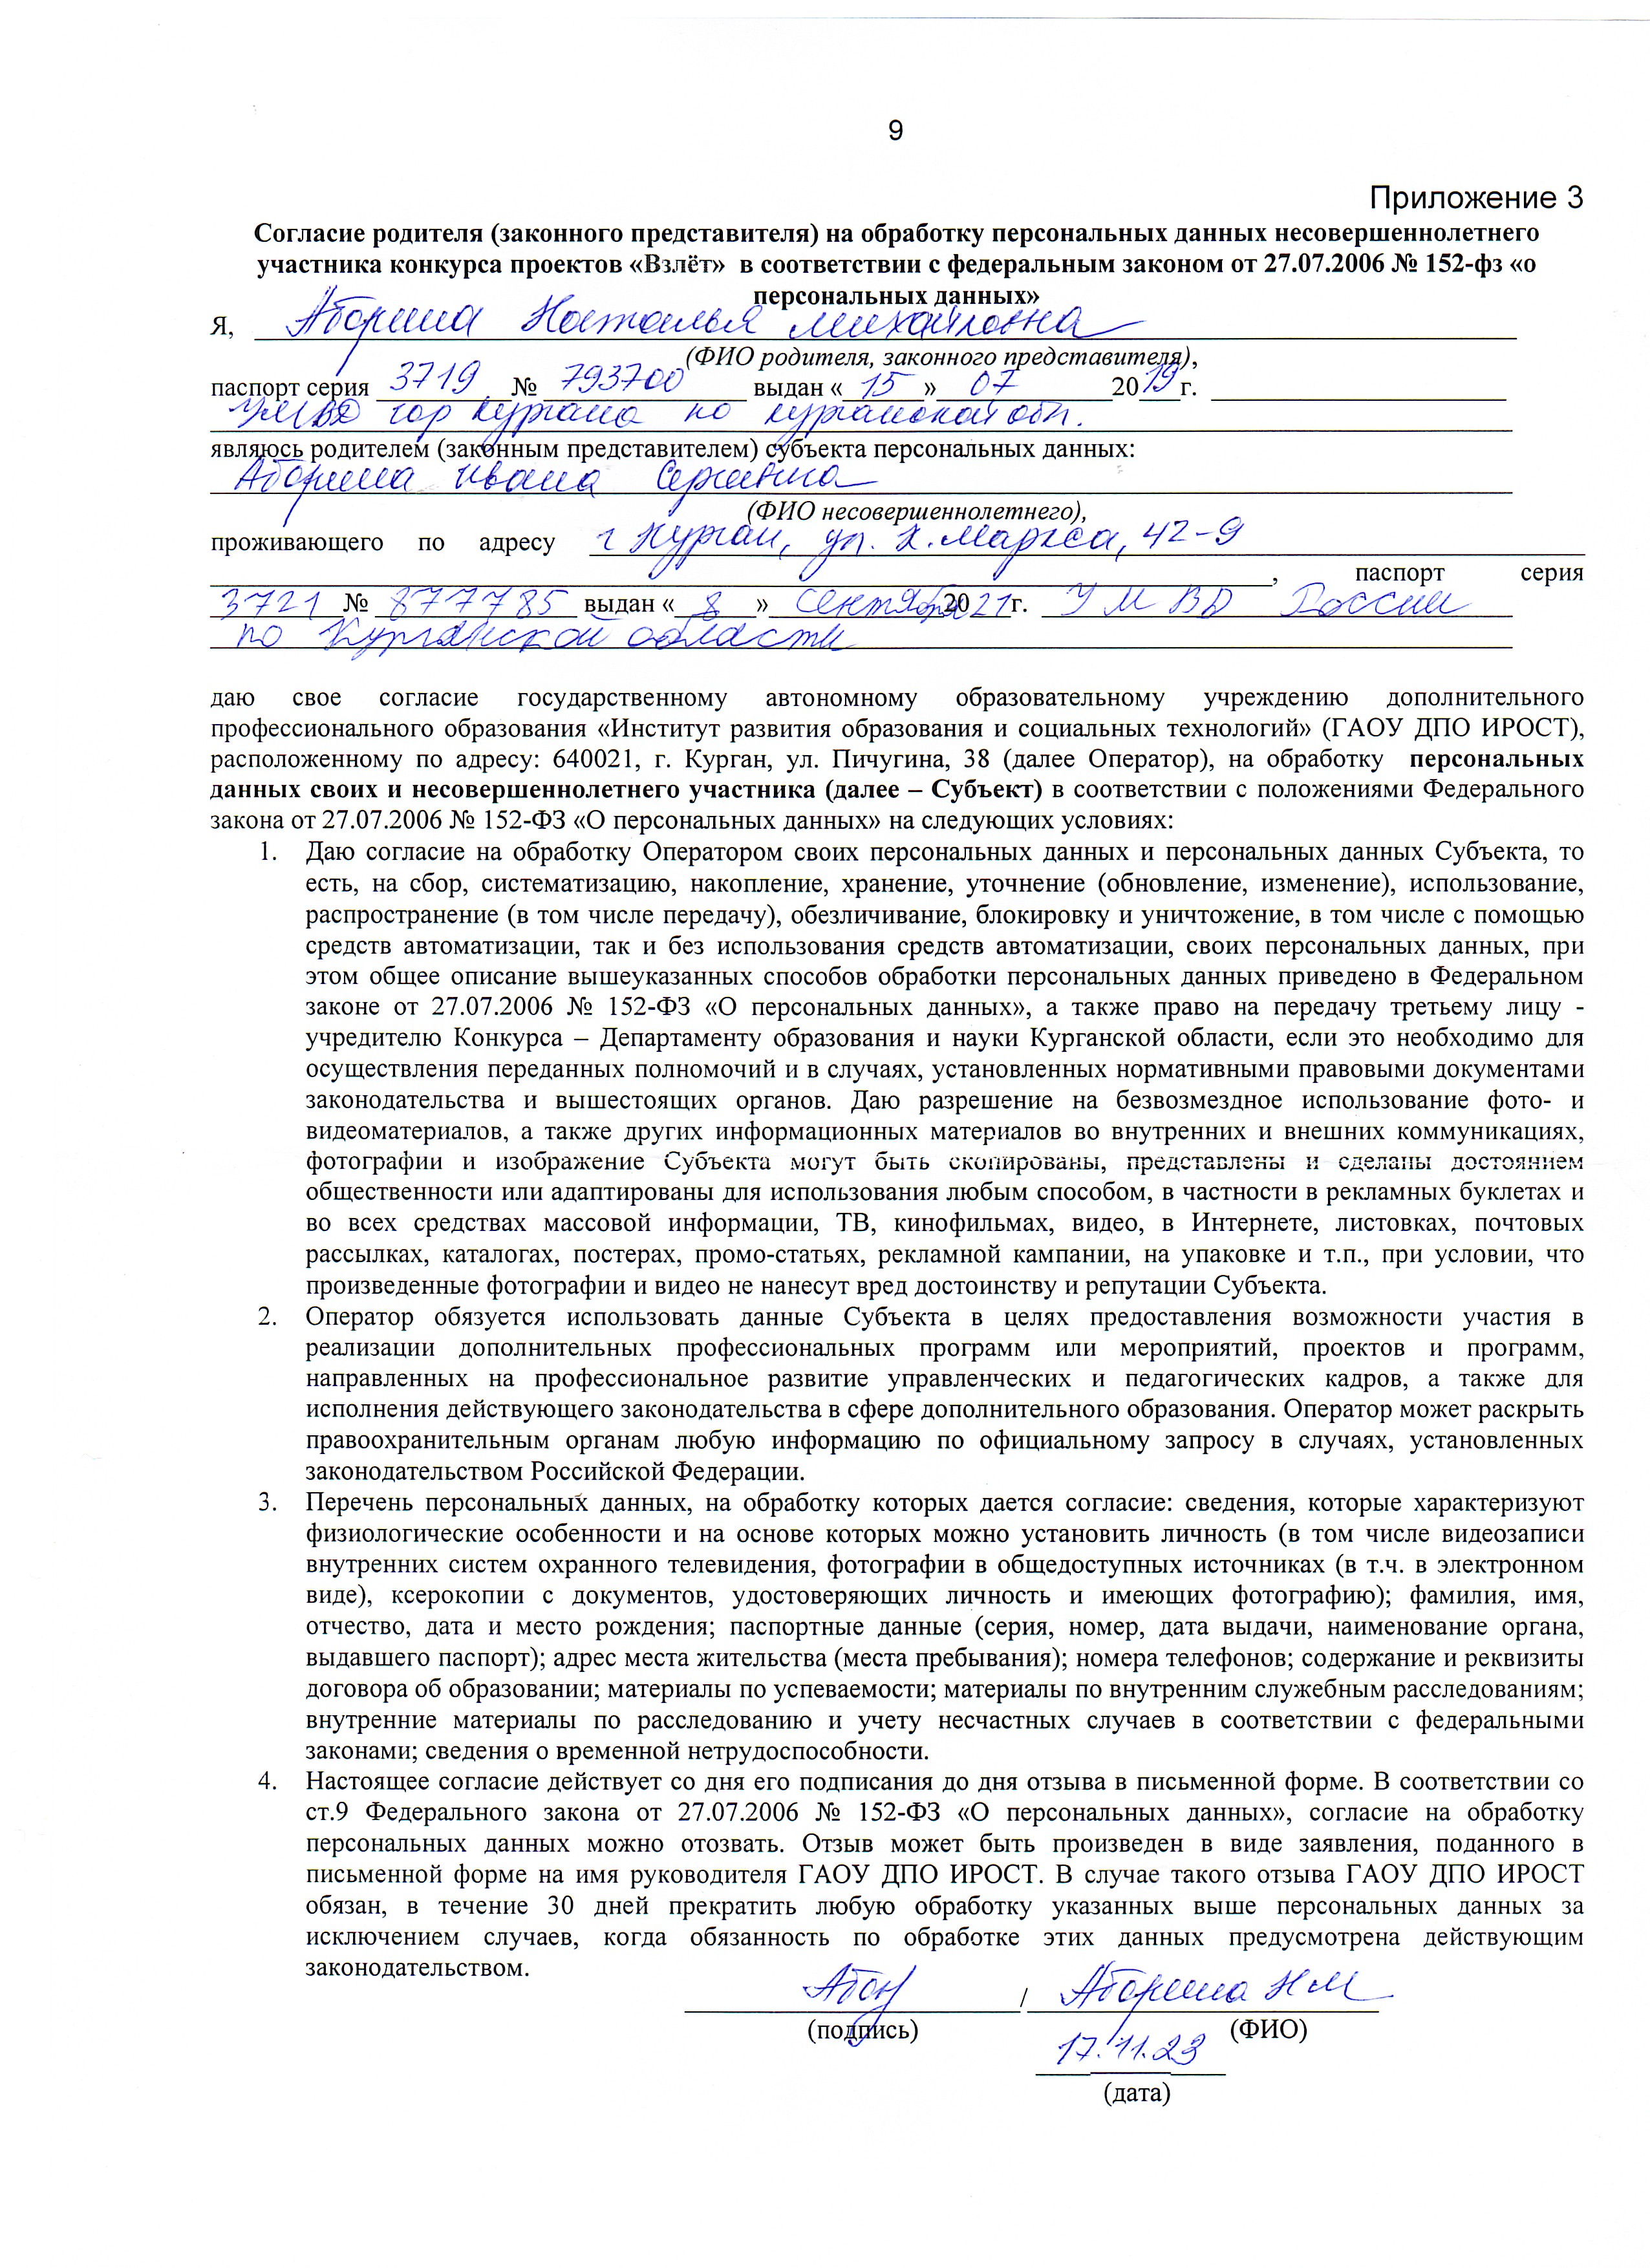 9
Приложение 3
Согласие родителя (законного представителя) на обработку персональных данных несовершеннолетнего
участника конкурса проектов «Взлёт» в соответствии с федеральным законом от 27.07.2006 № 152-фз «о
персональных данных»
Я, Аборина Наталья Михайловна
(ФИО родителя, законного представителя),
паспорт серия 3719 № 793700 выдан «15» 07 2019г.
УМВД гор Кургана по курганской обл.
являюсь родителем (законным представителем) субъекта персональных данных:
Аборина Ивана Сергеевича
(ФИО несовершеннолетнего),
проживающего по адресу г Курган, ул. К.Маркса, 42-9
, паспорт серия
3721 № 877785 выдан «8» сентября 2021г. УМВД России
по Курганской области
даю свое согласие государственному автономному образовательному учреждению дополнительного
профессионального образования «Институт развития образования и социальных технологий» (ГАОУ ДПО ИРОСТ),
расположенному по адресу: 640021, г. Курган, ул. Пичугина, 38 (далее Оператор), на обработку персональных
данных своих и несовершеннолетнего участника (далее – Субъект) в соответствии с положениями Федерального
закона от 27.07.2006 № 152-ФЗ «О персональных данных» на следующих условиях:
1. Даю согласие на обработку Оператором своих персональных данных и персональных данных Субъекта, то
есть, на сбор, систематизацию, накопление, хранение, уточнение (обновление, изменение), использование,
распространение (в том числе передачу), обезличивание, блокировку и уничтожение, в том числе с помощью
средств автоматизации, так и без использования средств автоматизации, своих персональных данных, при
этом общее описание вышеуказанных способов обработки персональных данных приведено в Федеральном
законе от 27.07.2006 № 152-ФЗ «О персональных данных», а также право на передачу третьему лицу -
учредителю Конкурса – Департаменту образования и науки Курганской области, если это необходимо для
осуществления переданных полномочий и в случаях, установленных нормативными правовыми документами
законодательства и вышестоящих органов. Даю разрешение на безвозмездное использование фото- и
видеоматериалов, а также других информационных материалов во внутренних и внешних коммуникациях,
фотографии и изображение Субъекта могут быть скопированы, представлены и сделаны достоянием
общественности или адаптированы для использования любым способом, в частности в рекламных буклетах и
во всех средствах массовой информации, ТВ, кинофильмах, видео, в Интернете, листовках, почтовых
рассылках, каталогах, постерах, промо-статьях, рекламной кампании, на упаковке и т.п., при условии, что
произведенные фотографии и видео не нанесут вред достоинству и репутации Субъекта.
2. Оператор обязуется использовать данные Субъекта в целях предоставления возможности участия в
реализации дополнительных профессиональных программ или мероприятий, проектов и программ,
направленных на профессиональное развитие управленческих и педагогических кадров, а также для
исполнения действующего законодательства в сфере дополнительного образования. Оператор может раскрыть
правоохранительным органам любую информацию по официальному запросу в случаях, установленных
законодательством Российской Федерации.
3. Перечень персональных данных, на обработку которых дается согласие: сведения, которые характеризуют
физиологические особенности и на основе которых можно установить личность (в том числе видеозаписи
внутренних систем охранного телевидения, фотографии в общедоступных источниках (в т.ч. в электронном
виде), ксерокопии с документов, удостоверяющих личность и имеющих фотографию); фамилия, имя,
отчество, дата и место рождения; паспортные данные (серия, номер, дата выдачи, наименование органа,
выдавшего паспорт); адрес места жительства (места пребывания); номера телефонов; содержание и реквизиты
договора об образовании; материалы по успеваемости; материалы по внутренним служебным расследованиям;
внутренние материалы по расследованию и учету несчастных случаев в соответствии с федеральными
законами; сведения о временной нетрудоспособности.
4. Настоящее согласие действует со дня его подписания до дня отзыва в письменной форме. В соответствии со
ст.9 Федерального закона от 27.07.2006 № 152-ФЗ «О персональных данных», согласие на обработку
персональных данных можно отозвать. Отзыв может быть произведен в виде заявления, поданного в
письменной форме на имя руководителя ГАОУ ДПО ИРОСТ. В случае такого отзыва ГАОУ ДПО ИРОСТ
обязан, в течение 30 дней прекратить любую обработку указанных выше персональных данных за
исключением случаев, когда обязанность по обработке этих данных предусмотрена действующим
законодательством.
/ Аборина НМ
(подпись) (ФИО)
17.11.23
(дата)